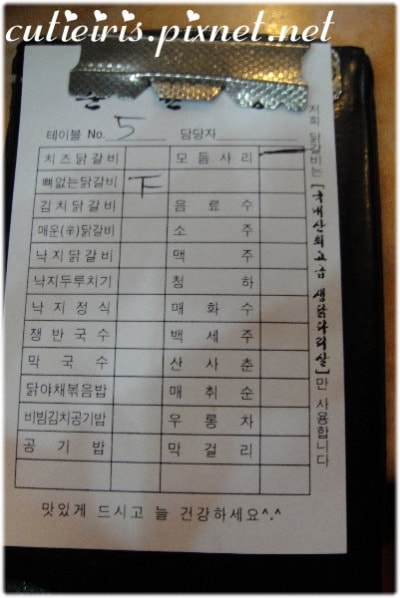 cutieiris.pixnet.net
테이블 No. 5 담당자
치즈닭갈비 모듬사리 一
뼈없는닭갈비 下
김치닭갈비 음료수
매운(辛)닭갈비 소주
낙지닭갈비 맥주
낙지두루치기 청하
낙지정식 매화수
쟁반국수 백세주
막국수 산사춘
닭야채볶음밥 매취순
비빔김치공기밥 우롱차
공기밥 막걸리
맛있게 드시고 늘 건강하세요^.^
저희 닭갈비는 [국내산최고급 생닭다리살]만 사용합니다